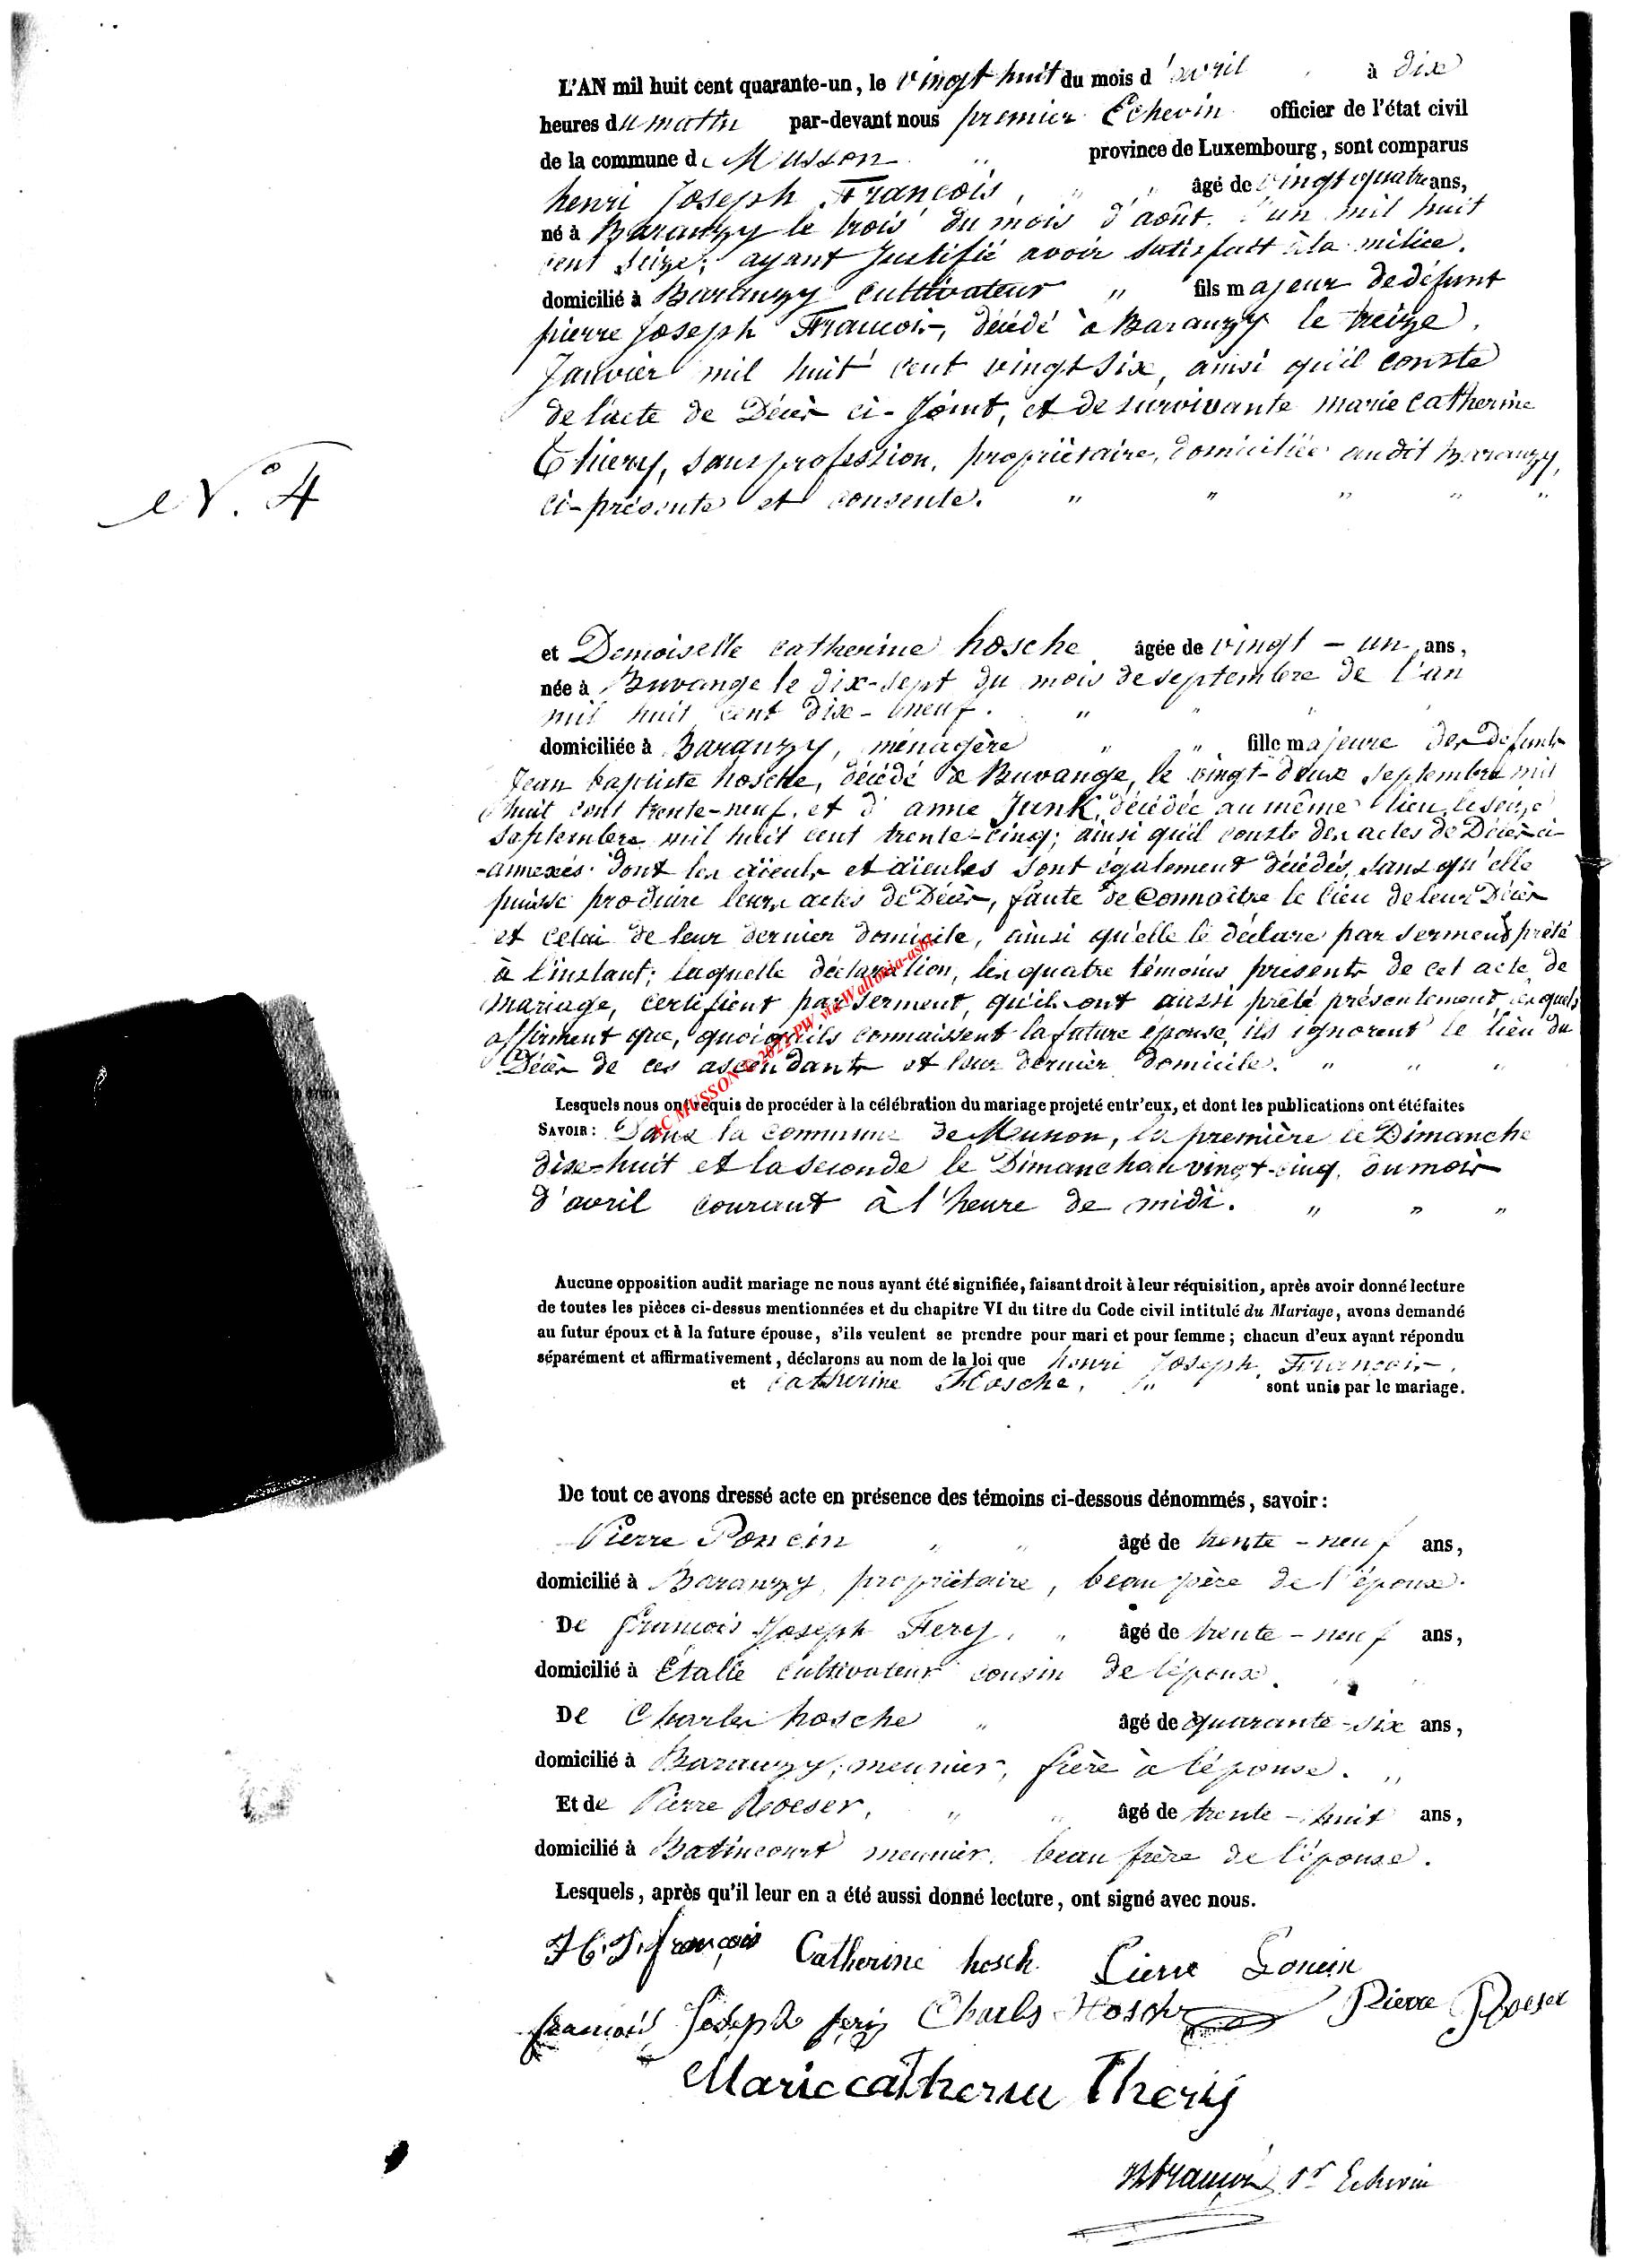 L'AN mil huit cent quarante-un, le vingt huit du mois d'avril à dix
heures du matin par-devant nous premier Echevin officier de l'état civil
de la commune de Musson " province de Luxembourg, sont comparus
henri Joseph François, " " âgé de vingt quatre ans,
né à Baranzy le trois du mois d'août l'an mil huit
cent seize; ayant Justifié avoir satisfait à la milice.
domicilié à Baranzy cultivateur " fils majeur de défunt
pierre Joseph François, décédé à Baranzy le treize
Janvier mil huit cent vingt six, ainsi qu'il conste
de l'acte de Décès ci-Joint, et de survivante marie catherine
Thiery, sans profession, propriétaire, domiciliée audit Baranzy,
ci-présente et consente. " " " " "
N° 4
et Demoiselle catherine hosche âgée de vingt-un ans,
née à Buvange le dix-sept du mois de septembre de l'an
mil huit cent dix-neuf. " " "
domiciliée à Baranzy, ménagère " " fille majeure des défunts
Jean baptiste hosche, décédé à Buvange, le vingt-deux septembre mil
huit cent trente-neuf, et d'anne Junk, décédée au même lieu, le seize
septembre mil huit cent trente-cinq; ainsi qu'il conste des actes de Décès ci
-annexés. dont les aïeuls et aïeules sont également décédés, sans qu'elle
puisse produire leurs actes de Décès, faute de Connaître le lieu de leur Décès
et celui de leur dernier domicile, ainsi qu'elle le déclare par serment prêté
à l'instant; laquelle déclaration, les quatre témoins présents de cet acte de
mariage, certifient par serment, qu'ils ont aussi prêté présentement, lesquels
affirment que, quoiqu'ils connaissent la future épouse, ils ignorent le lieu du
Décès de ces ascendants et leur dernier domicile. " " "
AC MUSSON © 2022 PW via Wallonia-asbl
Lesquels nous ont requis de procéder à la célébration du mariage projeté entr'eux, et dont les publications ont été faites
SAVOIR: Dans la commune de Musson, la première le Dimanche
dix-huit et la seconde le Dimanche vingt-cinq, du mois
d'avril courant à l'heure de midi. " " "
Aucune opposition audit mariage ne nous ayant été signifiée, faisant droit à leur réquisition, après avoir donné lecture
de toutes les pièces ci-dessus mentionnées et du chapitre VI du titre du Code civil intitulé du Mariage, avons demandé
au futur époux et à la future épouse, s'ils veulent se prendre pour mari et pour femme; chacun d'eux ayant répondu
séparément et affirmativement, déclarons au nom de la loi que henri Joseph François,
et catherine Hosche, " sont unis par le mariage.
De tout ce avons dressé acte en présence des témoins ci-dessous dénommés, savoir:
Pierre Poncin " " âgé de trente-neuf ans,
domicilié à Baranzy, propriétaire, beau père de l'époux.
De françois Joseph Fery, " âgé de trente-neuf ans,
domicilié à Etalle cultivateur cousin de l'époux.
De Charles hosche " âgé de quarante-six ans,
domicilié à Baranzy, meunier, frère à l'épouse. "
Et de Pierre Roeser, " " âgé de trente-huit ans,
domicilié à Batincourt meunier, beau frère de l'épouse.
Lesquels, après qu'il leur en a été aussi donné lecture, ont signé avec nous.
H. J. françois Catherine hosch Pierre Poncin
francois Joseph fery Charles Hosch Pierre Roeser
Marie catherin Thery
1r Echevin